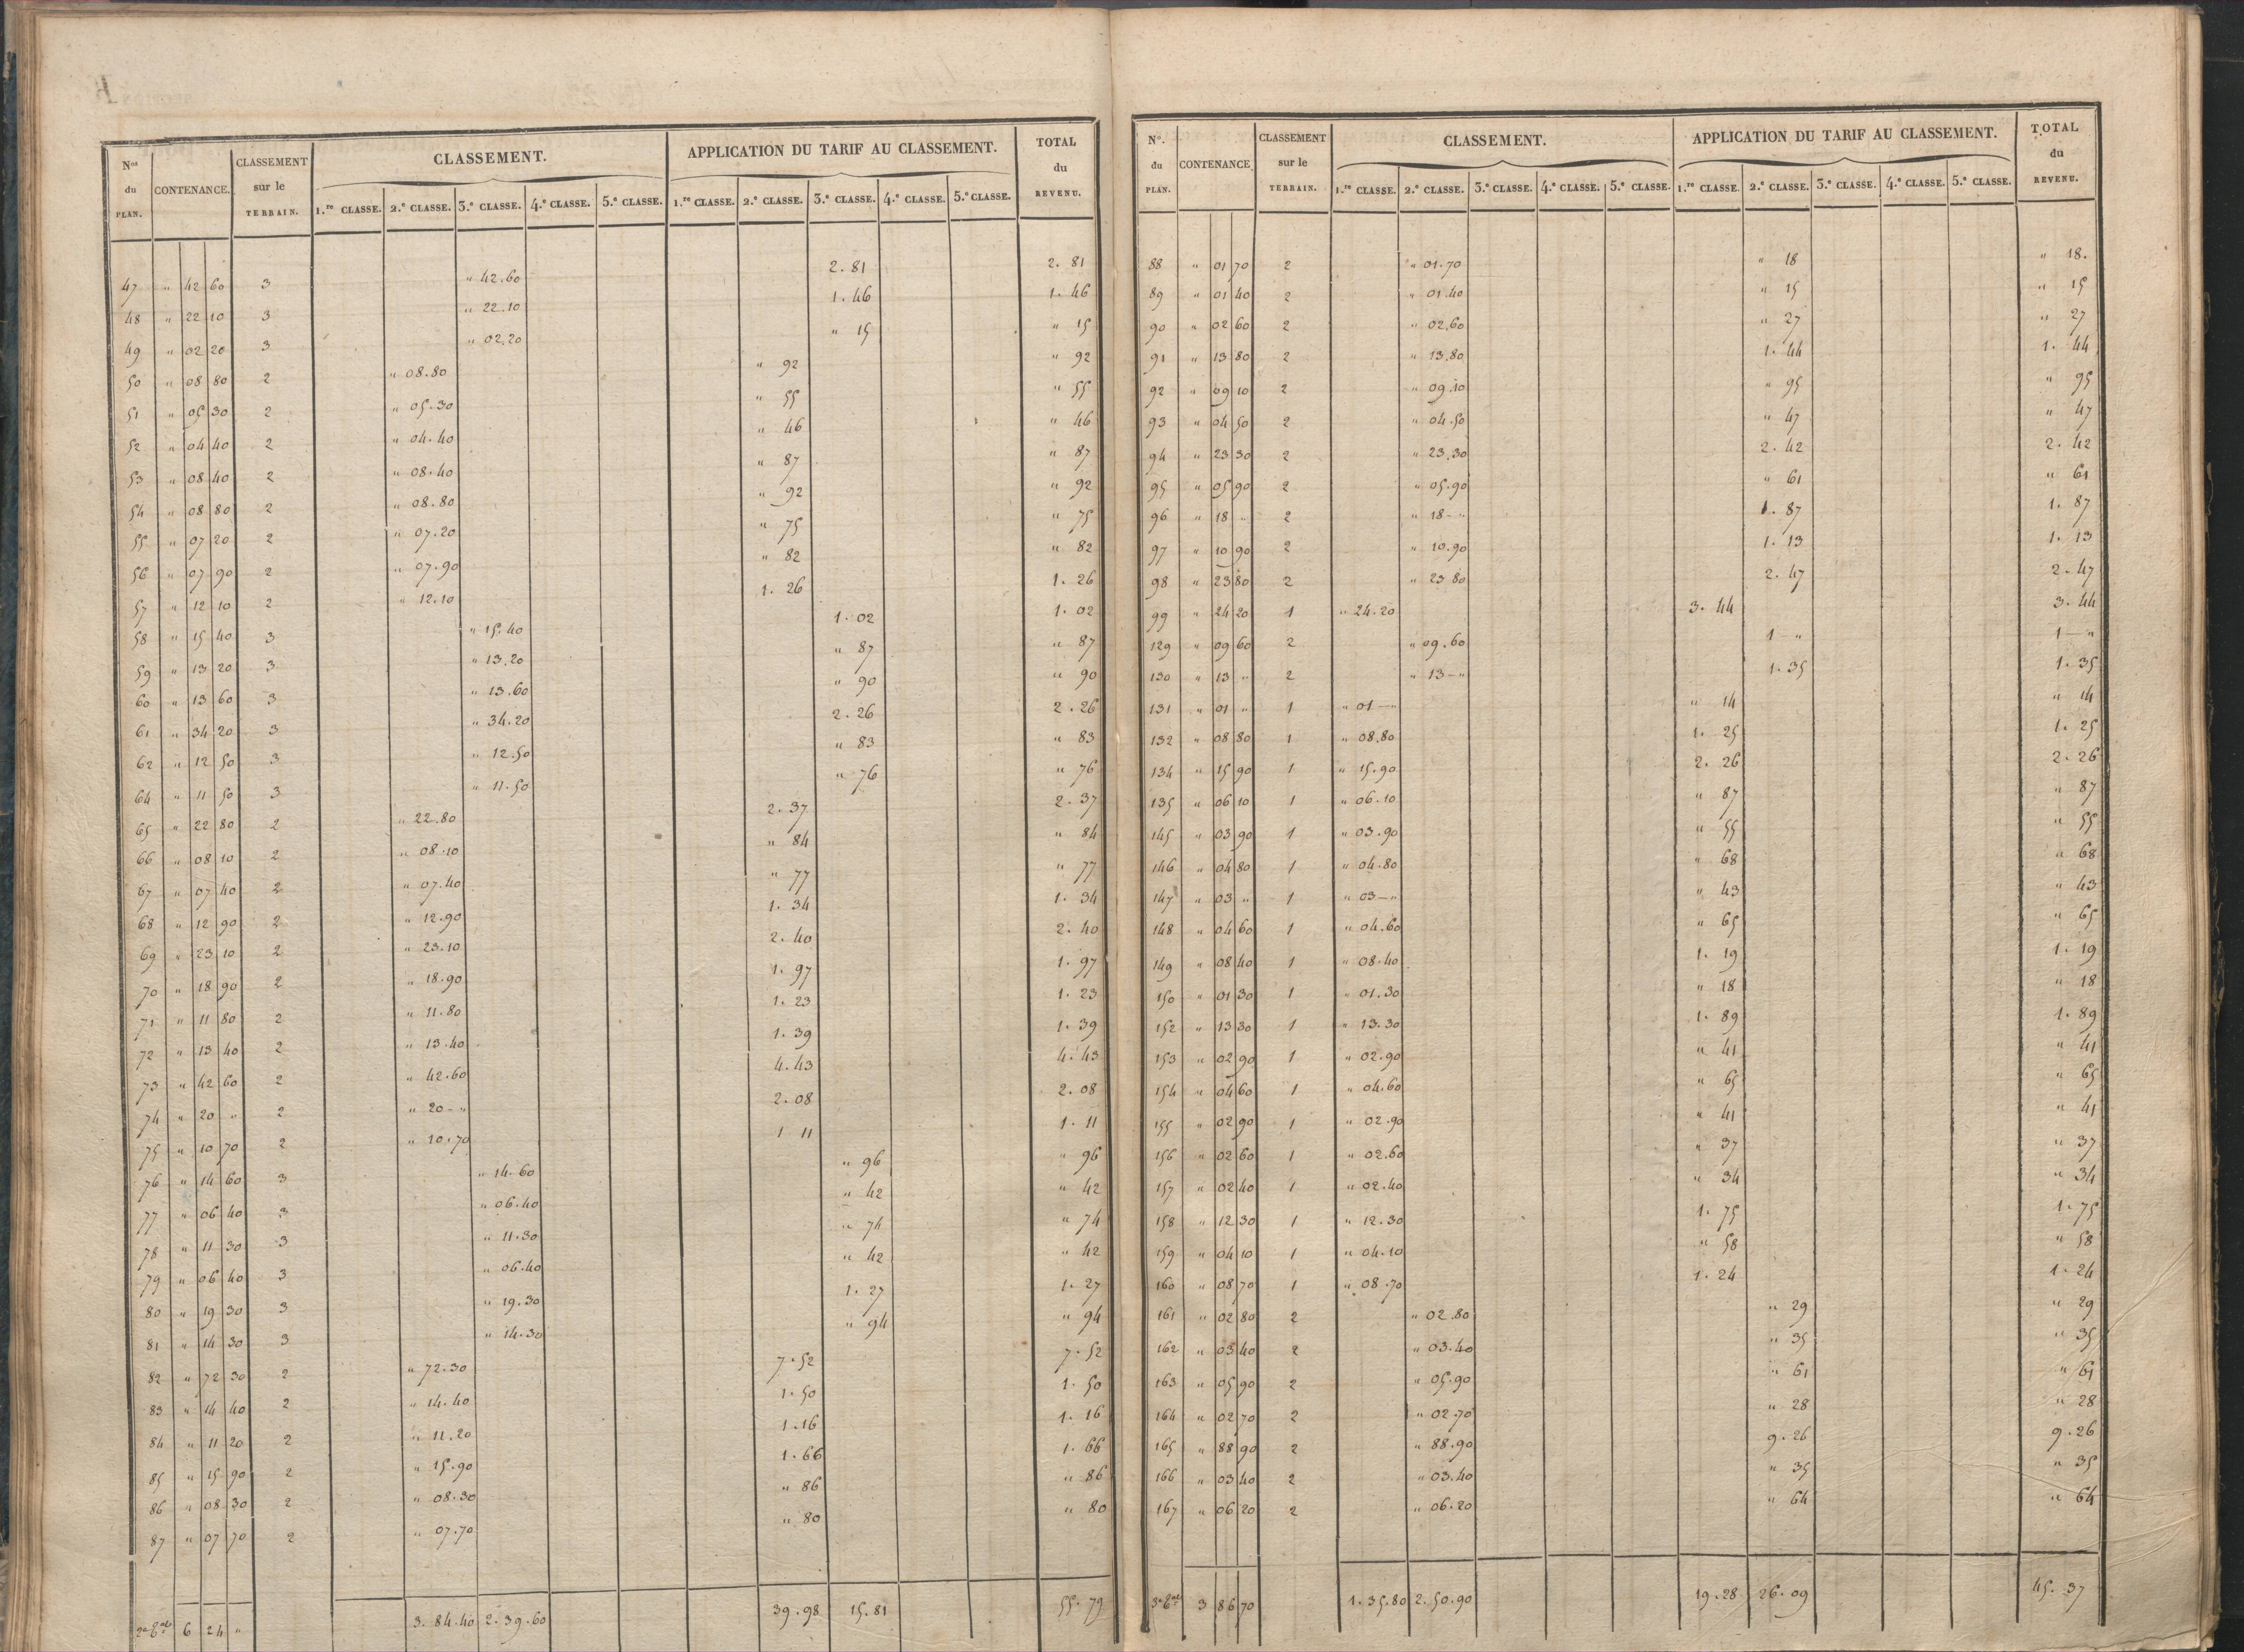 Nos du PLAN. CONTENANCE. CLASSEMENT sur le TERRAIN. CLASSEMENT. APPLICATION DU TARIF AU CLASSEMENT. TOTAL du REVENU.
1.re CLASSE. 2.e CLASSE. 3.e CLASSE. 4.e CLASSE. 5.e CLASSE. 1.re CLASSE. 2.e CLASSE. 3.e CLASSE. 4.e CLASSE. 5.e CLASSE.
47 " 42 60 3 " 42.60 2.81 2.81
48 " 22 10 3 " 22.10 1.46 1.46
49 " 02 20 3 " 02.20 " 15 " 15
50 " 08 80 2 " 08.80 " 92 " 92
51 " 05 30 2 " 05.30 " 55 " 55
52 " 04 40 2 " 04.40 " 46 " 46
53 " 08 40 2 " 08.40 " 87 " 87
54 " 08 80 2 " 08.80 " 92 " 92
55 " 07 20 2 " 07.20 " 75 " 75
56 " 07 90 2 " 07.90 " 82 " 82
57 " 12 10 2 " 12.10 1.26 1.26
58 " 15 40 3 " 15.40 1.02 1.02
59 " 13 20 3 " 13.20 " 87 " 87
60 " 13 60 3 " 13.60 " 90 " 90
61 " 34 20 3 " 34.20 2.26 2.26
62 " 12 50 3 " 12.50 " 83 " 83
64 " 11 50 3 " 11.50 " 76 " 76
65 " 22 80 2 " 22.80 2.37 2.37
66 " 08 10 2 " 08.10 " 84 " 84
67 " 07 40 2 " 07.40 " 77 " 77
68 " 12 90 2 " 12.90 1.34 1.34
69 " 23 10 2 " 23.10 2.40 2.40
70 " 18 90 2 " 18.90 1.97 1.97
71 " 11 80 2 " 11.80 1.23 1.23
72 " 13 40 2 " 13.40 1.39 1.39
73 " 42 60 2 " 42.60 4.43 4.43
74 " 20 " 2 " 20-" 2.08 2.08
75 " 10 70 2 " 10.70 1 11 1.11
76 " 14 60 3 " 14.60 " 96 " 96
77 " 06 40 3 " 06.40 " 42 " 42
78 " 11 30 3 " 11.30 " 74 " 74
79 " 06 40 3 " 06.40 " 42 " 42
80 " 19 30 3 " 19.30 1.27 1.27
81 " 14 30 3 " 14.30 " 94 " 94
82 " 72 30 2 " 72.30 7.52 7.52
83 " 14 40 2 " 14.40 1.50 1.50
84 " 11 20 2 " 11.20 1.16 1.16
85 " 15 90 2 " 15.90 1.66 1.66
86 " 08 30 2 " 08.30 " 86 " 86
87 " 07 70 2 " 07.70 " 80 " 80
6 24 " 3.84.40 2.39.60 39.98 15.81 55.79
No. du PLAN. CONTENANCE CLASSEMENT sur le TERRAIN. CLASSEMENT. APPLICATION DU TARIF AU CLASSEMENT. TOTAL du REVENU.
1.re CLASSE. 2.e CLASSE. 3.e CLASSE. 4.e CLASSE. 5.e CLASSE. 1.re CLASSE. 2.e CLASSE. 3.e CLASSE. 4.e CLASSE. 5.e CLASSE.
88 " 01 70 2 " 01.70 " 18 " 18.
89 " 01 40 2 " 01.40 " 15 " 15
90 " 02 60 2 " 02.60 " 27 " 27
91 " 13 80 2 " 13.80 1.44 1.44
92 " 09 10 2 " 09.10 " 95 " 95
93 " 04 50 2 " 04.50 " 47 " 47
94 " 23 30 2 " 23.30 2.42 2.42
95 " 05 90 2 " 05.90 " 61 " 61
96 " 18 " 2 " 18-" 1.87 1.87
97 " 10 90 2 " 10.90 1.13 1.13
98 " 23 80 2 " 23 80 2.47 2.47
99 " 24 20 1 " 24.20 3.44 3.44
129 " 09 60 2 " 09.60 1 " 1-"
130 " 13 " 2 " 13-" 1.35 1.35
131 " 01 " 1 " 01-" " 14 " 14
132 " 08 80 1 " 08.80 1.25 1.25
134 " 15 90 1 " 15.90 2.26 2.26
135 " 06 10 1 " 06.10 " 87 " 87
145 " 03 90 1 " 03.90 " 55 " 55
146 " 04 80 1 " 04.80 " 68 " 68
147 " 03 " 1 " 03-" " 43 " 43
148 " 04 60 1 " 04.60 " 65 " 65
149 " 08 40 1 " 08.40 1.19 1.19
150 " 01 30 1 " 01.30 " 18 " 18
152 " 13 30 1 " 13.30 1.89 1.89
153 " 02 90 1 " 02.90 " 41 " 41
154 " 04 60 1 " 04.60 " 65 " 65
155 " 02 90 1 " 02.90 " 41 " 41
156 " 02 60 1 " 02.60 " 37 " 37
157 " 02 40 1 " 02.40 " 34 " 34
158 " 12 30 1 " 12.30 1.75 1.75
159 " 04 10 1 " 04.10 " 58 " 58
160 " 08 70 1 " 08.70 1.24 1.24
161 " 02 80 2 " 02.80 " 29 " 29
162 " 03 40 2 " 03.40 " 35 " 35
163 " 05 90 2 " 05.90 " 61 " 61
164 " 02 70 2 " 02.70 " 28 " 28
165 " 88 90 2 " 88.90 9.26 9.26
166 " 03 40 2 " 03.40 " 35 " 35
167 " 06 20 2 " 06.20 " 64 " 64
3 86 70 1.35.80 2.50.90 19.28 26.09 45.37